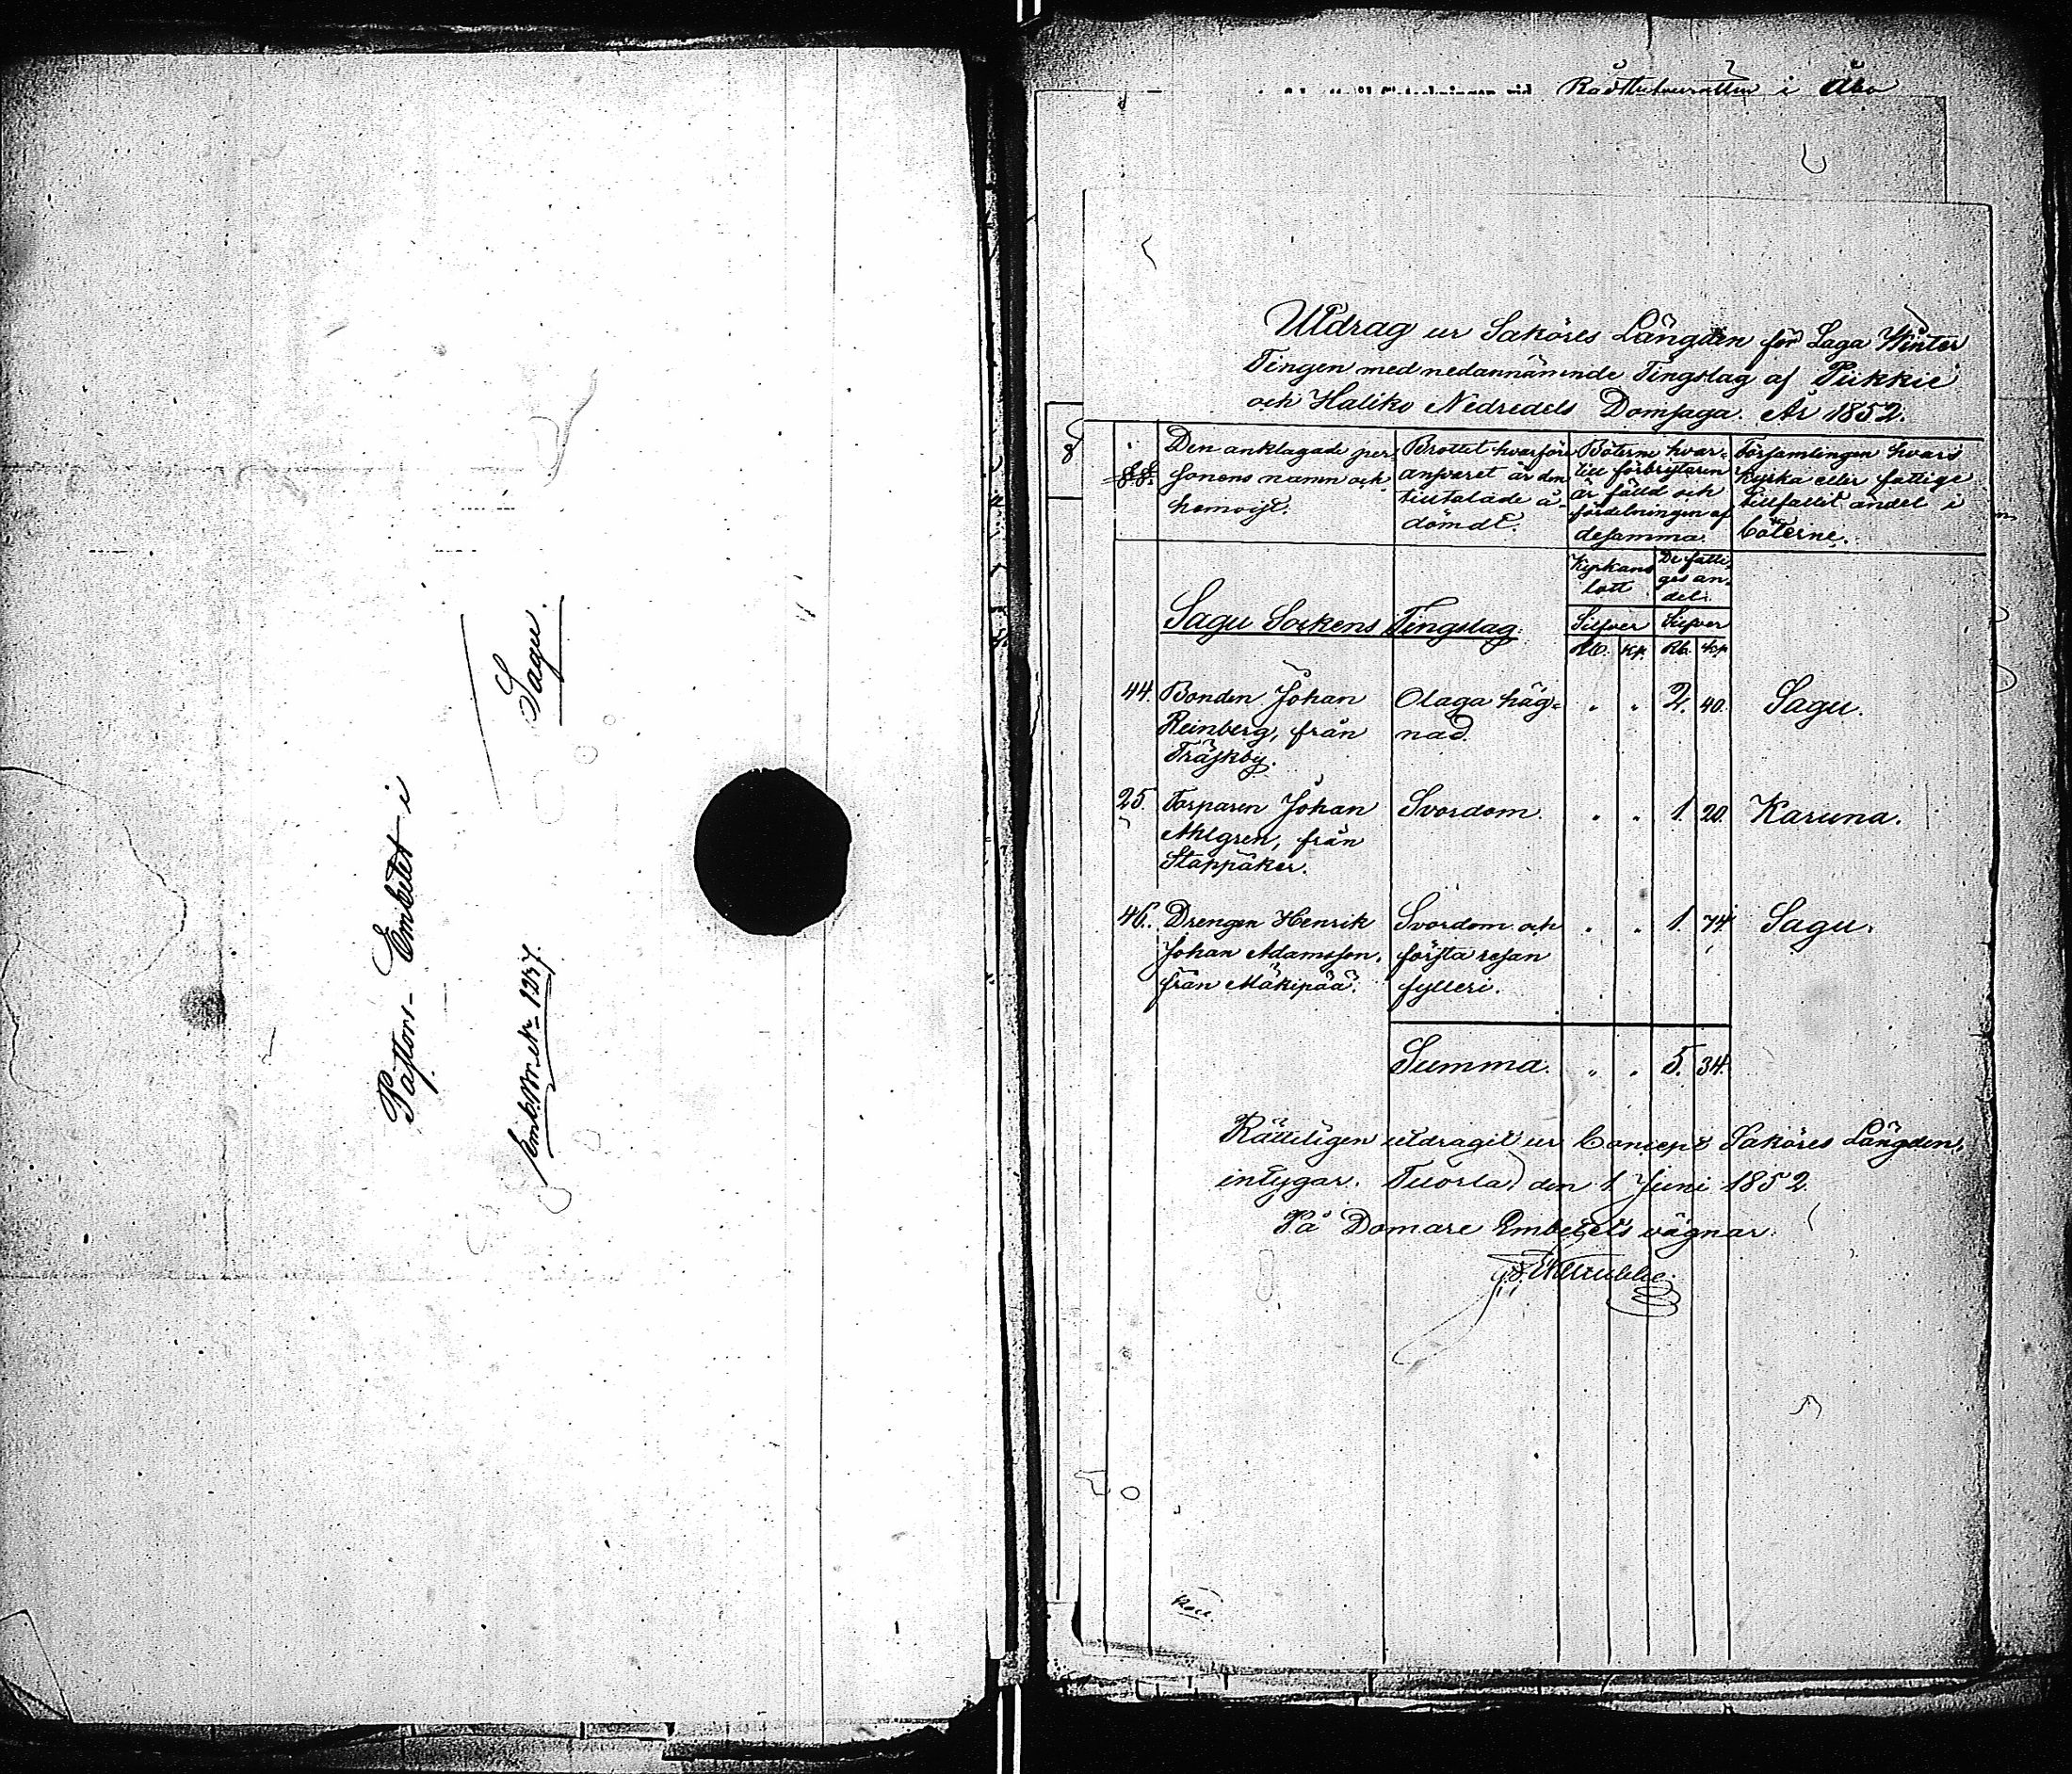 Pastors- Embetet i
Sagu.
Emb. Br. No 1237.
Rådstufvurätten i Åbo
Utdrag ur Saköres Längden för Laga Winter
Tingen med nedannämnde Tingslag af Piikkie
och Haliko Nedredels Domsaga. År 1852.
§§. Den anklagade per- Brottet hvarföre Böterne hvar- Församlingen hvars
sonens namn och ansvaret är den till förbrytaren kyrka eller fattige
hemvist. tilltalade å- är fälld och tillfallit andel i
dömdt. fördelningen af böterne.
desamma.
Kyrkans De fatti-
lott ges an-
del.
Sagu Sockens Tingslag. Silfver Silfver
Rb. Kp. Rb. Kp.
44. Bonden Johan Olaga häg- " " 2. 40. Sagu.
Reinberg, från nad.
Träskby.
25. Torparen Johan Svordom. " " 1. 20. Karuna.
Ahlgren, från
Stappåker.
46. Drengen Henrik Svordom och " " 1. 74. Sagu.
Johan Adamsson, första resan
från Mäkipää. fylleri.
Summa. " " 5. 34.
Rätteligen utdragit ur Concept Saköres Längden,
intygar. Tuorla, den 1 Juni 1852.
På Domare Embetets vägnar.